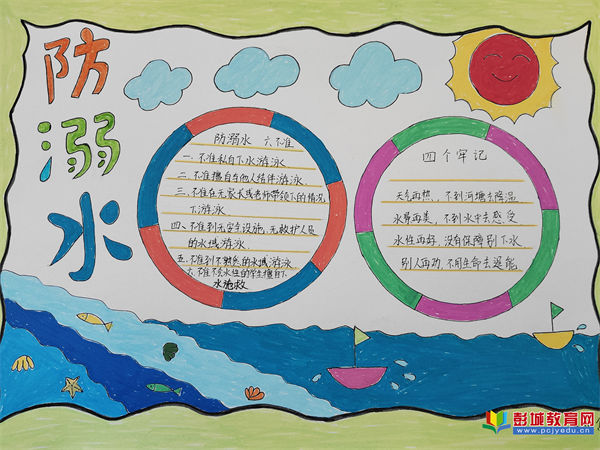 防
溺
水
防溺水 六不准
一、不准私自下水游泳
二、不准擅自与他人结伴游泳
三、不准在无家长或老师带领下的情况
下游泳
四、不准到无安全设施、无救护人员
的水域游泳
五、不准到不熟悉的水域游泳
六、不准不会水性的学生擅自下
水施救
四个牢记
天气再热，不到河塘去降温
水景再美，不到水中去感受
水性再好，没有保障别下水
别人再劝，不用生命去逞能
彭城教育网
www.pcjyedu.cn